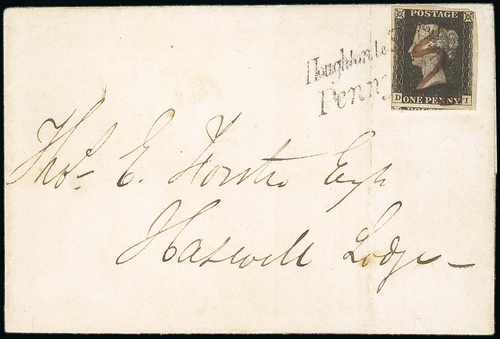 POSTAGE
Houghton le
Penny
D ONE PENNY I
Thos. E. Forster Esqr
Haswell Lodge